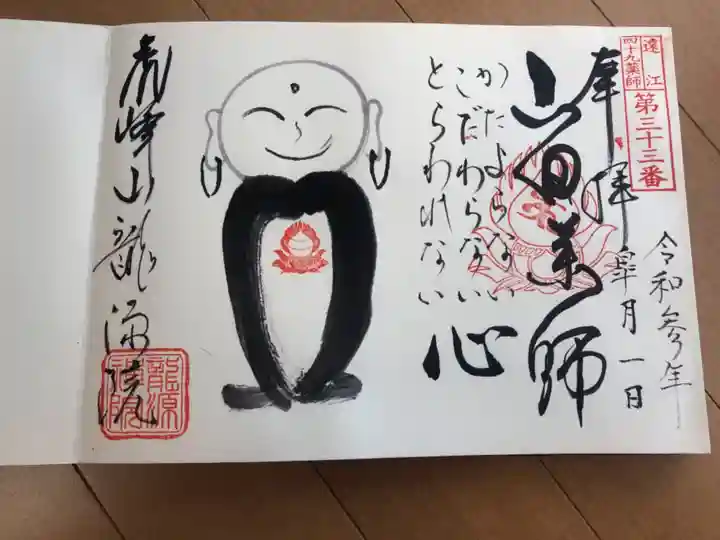 遠江
四十九薬師
第三十三番
奉拝
令和参年
皐月一日
かたよらない
こだわらない
とらわれない
心
虎峰山龍源院
龍源